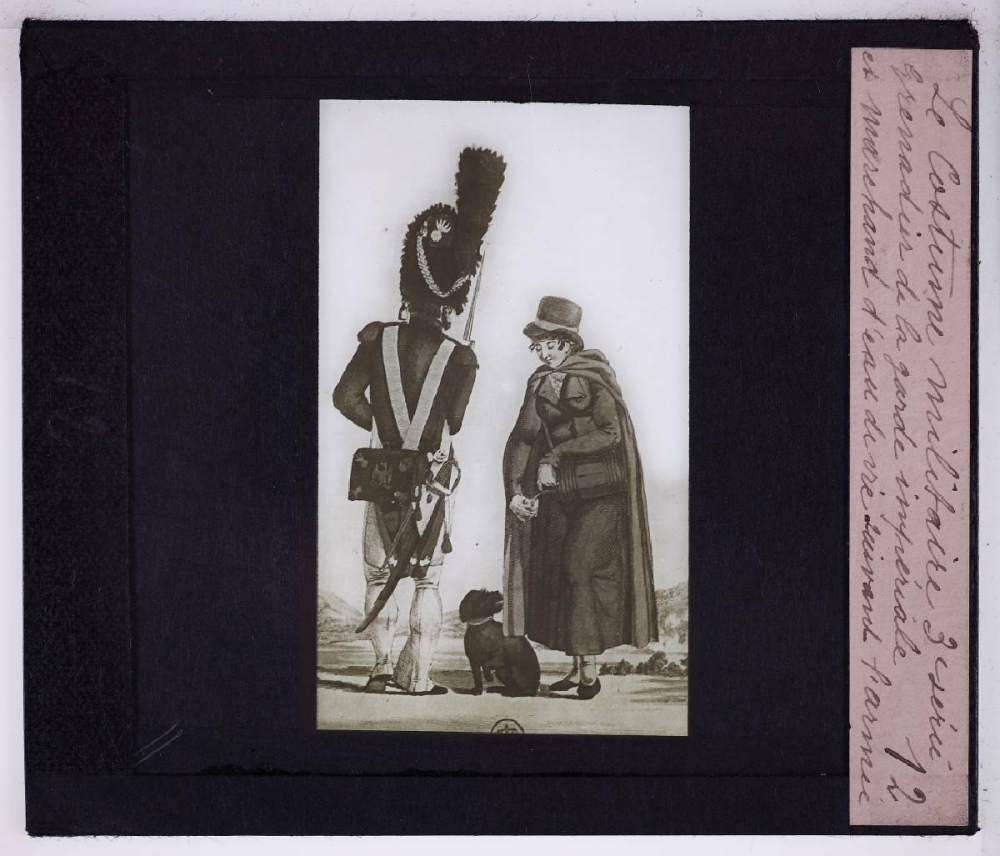 Le Costume militaire 3e série
Grenadier de la garde impériale 12
et marchand d'eau de vie suivant l'armée